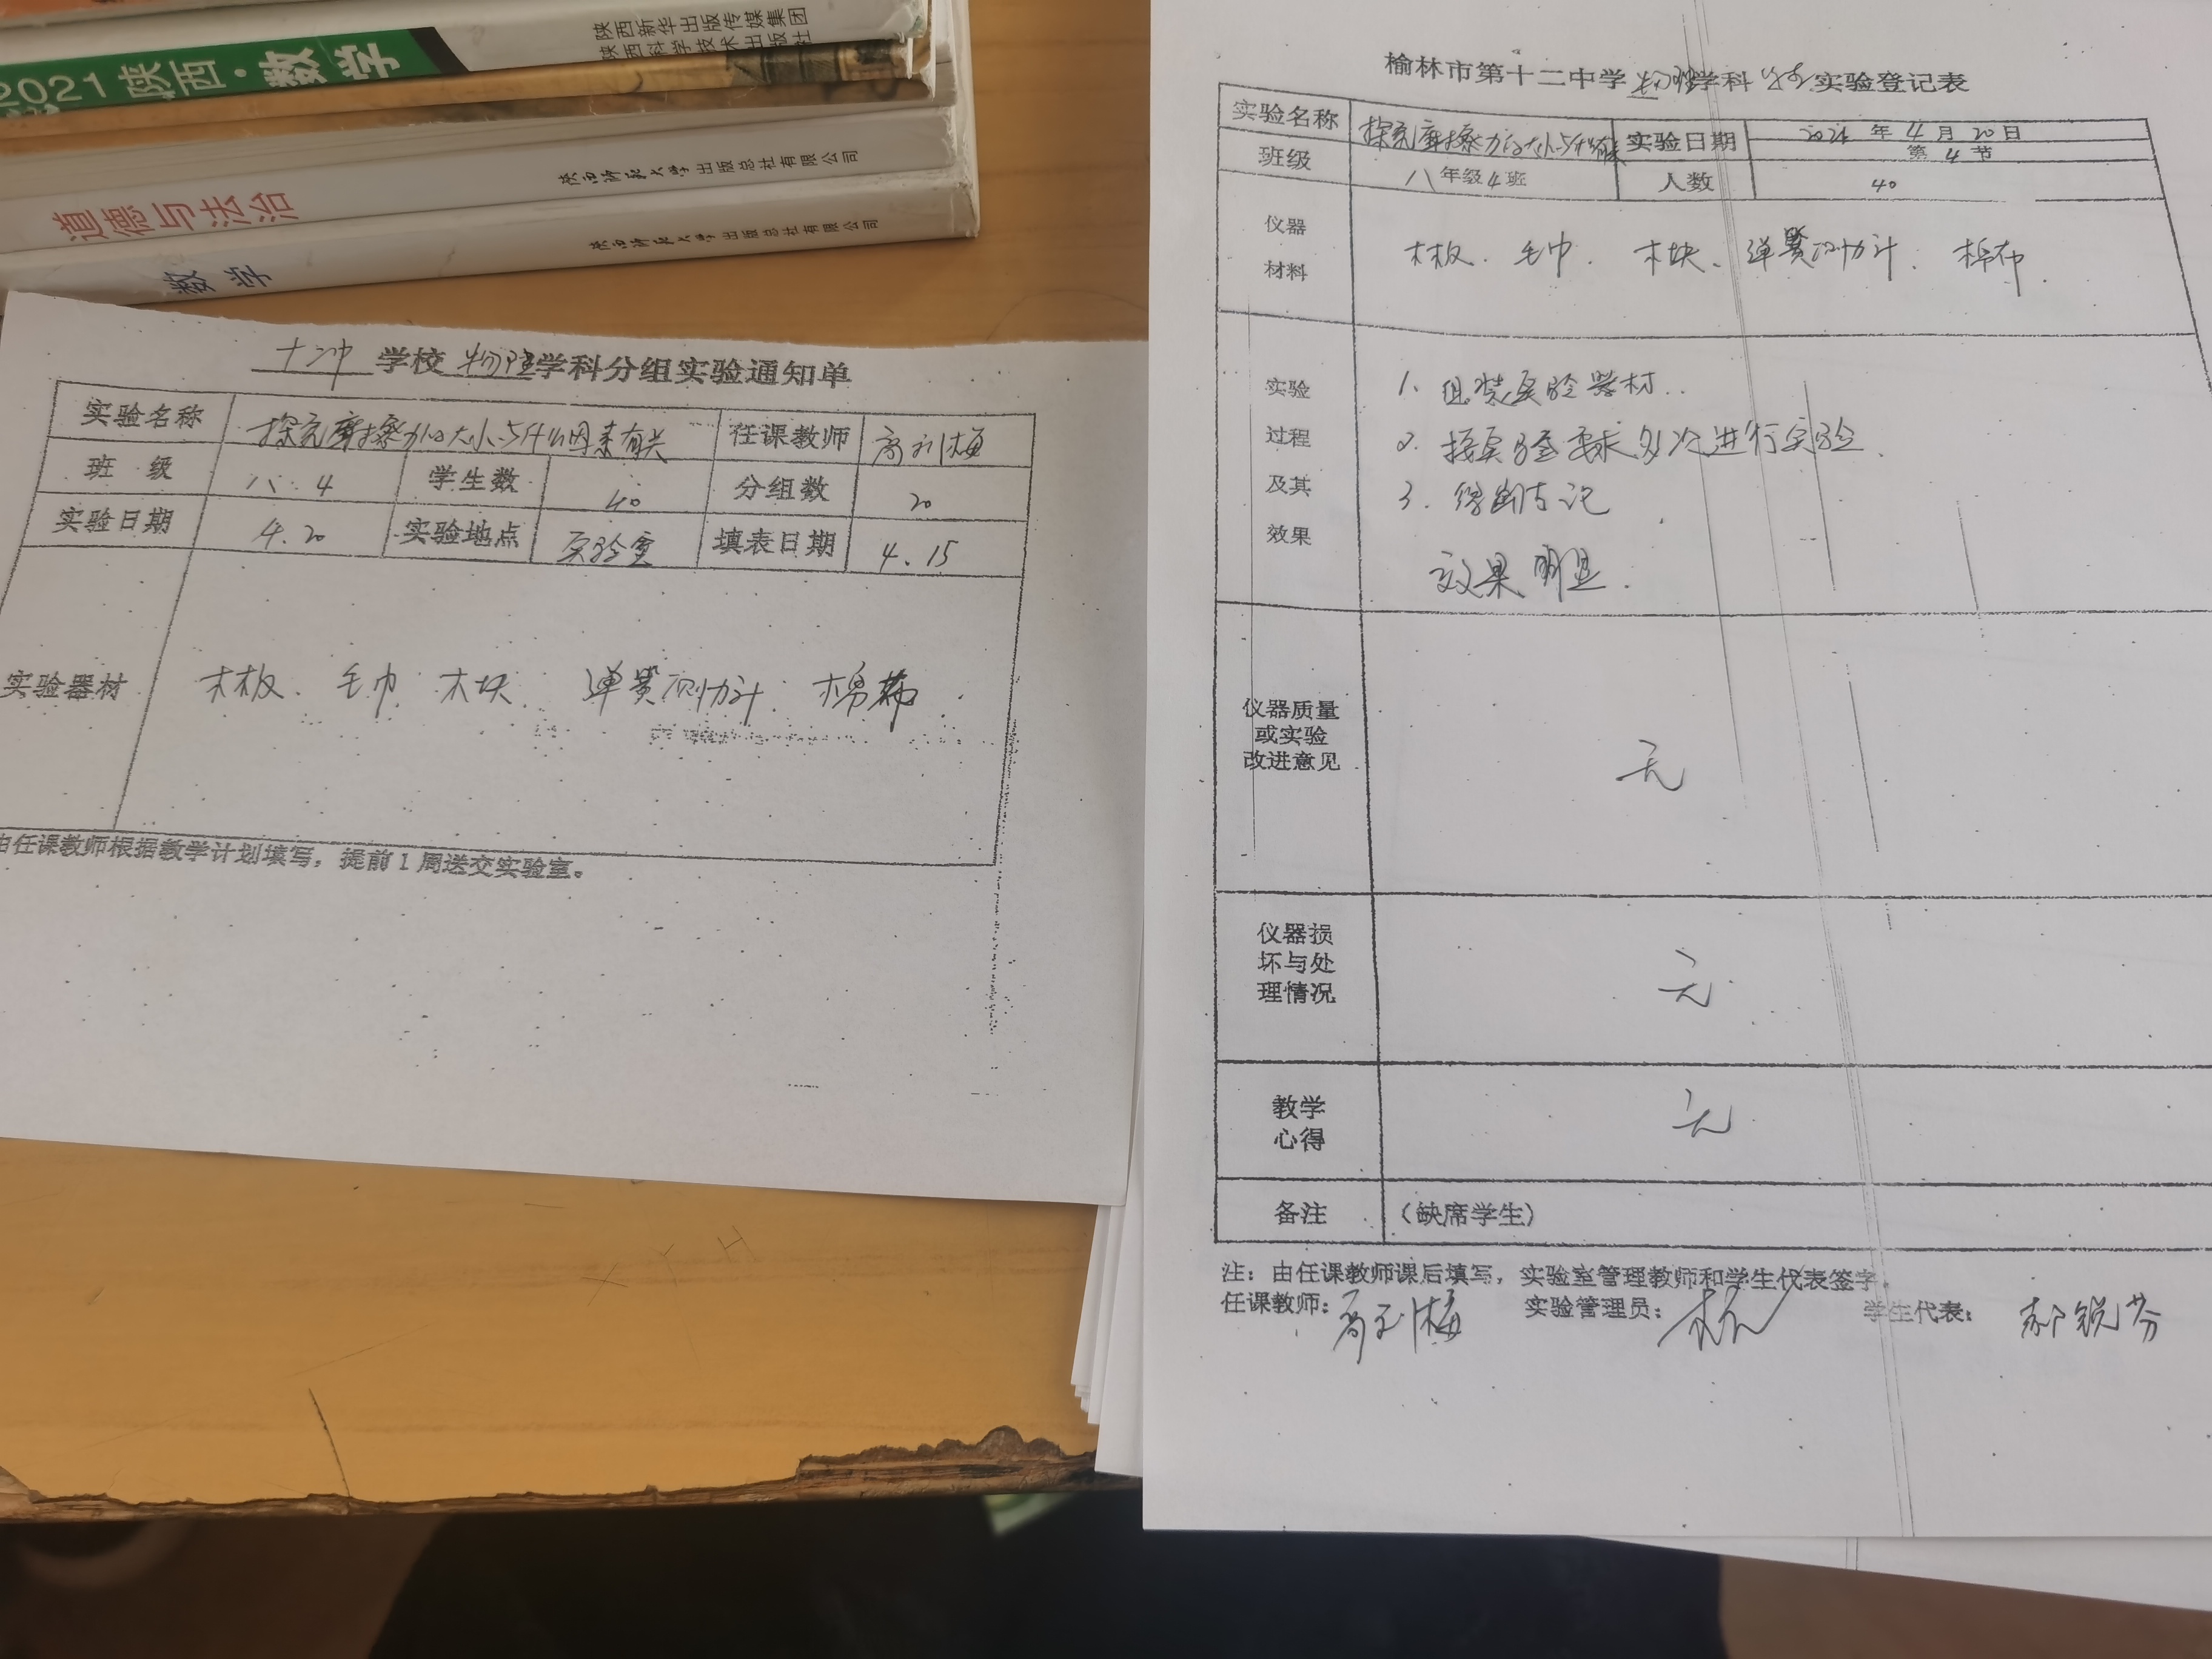 2021 陕西·数学
陕西新华出版传媒集团
陕西科学技术出版社
道德与法治
陕西师范大学出版总社有限公司
数学
陕西师范大学出版总社有限公司
十二中 学校 物理 学科分组实验通知单
实验名称 探究摩擦力的大小与什么因素有关 任课教师 高 梅
班 级 八.4 学生数 40 分组数 20
实验日期 4.20 实验地点 实验室 填表日期 4.15
实验器材 木板、毛巾、木块、弹簧测力计、棉布.
由任课教师根据教学计划填写，提前1周送交实验室。
榆林市第十二中学 物理 学科 实验登记表
实验名称 探究摩擦力的大小与什么 实验日期 2021 年 4 月 20 日
第 4 节
班级 八 年级 4 班 人数 40
仪器 材料 木板、毛巾、木块、弹簧测力计、棉布.
实验 过程 及其 效果
1. 组装实验器材.
2. 按实验要求多次进行实验.
3.
效果明显.
仪器质量
或实验
改进意见 无
仪器损
坏与处
理情况 无
教学
心得 无
备注 （缺席学生）
注：由任课教师课后填写，实验室管理教师和学生代表签字。
任课教师：高 梅 实验管理员： 学生代表：郝锐芬